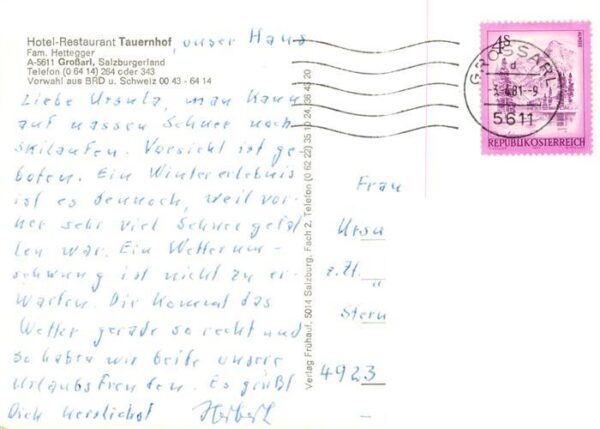 Hotel-Restaurant Tauernhof, unser Haus
Fam. Hettegger
A-5611 Großarl, Salzburgerland
Telefon (0 64 14) 264 oder 343
Vorwahl aus BRD u. Schweiz 00 43 - 64 14
Liebe Ursula, man kann
auf nassen Schnee noch
skilaufen. Vorsicht ist ge-
boten. Ein Wintererlebnis
ist es dennoch, weil vor-
her sehr viel Schnee gefal-
len war. Ein Wetterum-
schwung ist nicht zu er-
warten. Dir kommt das
Wetter gerade so recht und
so haben wir beide unsere
Urlaubsfreuden. Es grüßt
Dich herzlichst Herbert
Verlag Frühauf, 5014 Salzburg, Fach 2, Telefon (0 62 22) 35 10 24, 36 43 20
4 S
ALMSEE
REPUBLIK ÖSTERREICH
GROSSARL
d
-3.4.81--9
5611
Frau
Ursu
z.Zt.
Stern
4923